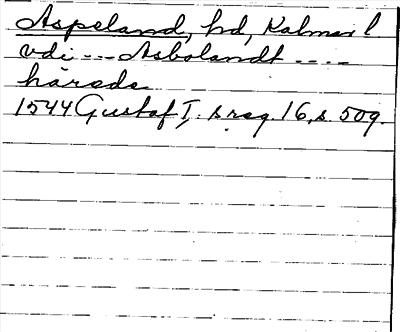 Aspeland, hd, Kalmar l
vdi --- Asbolandt ----
härade
1544 Gustaf I:s reg. 16, s. 509.